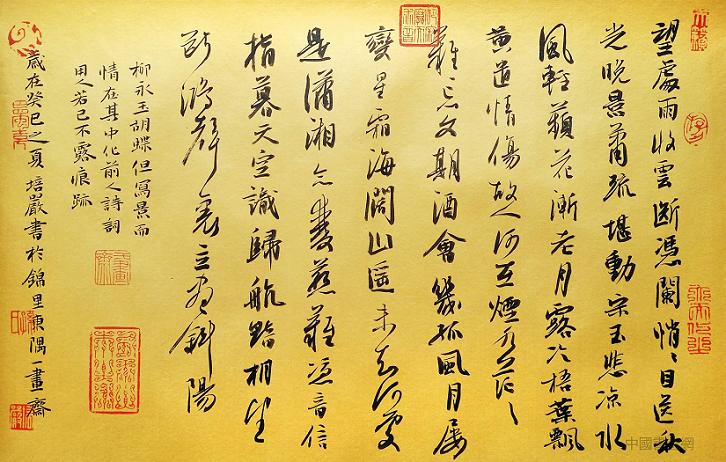 望處雨收雲斷憑闌悄〻目送秋
光晚景蕭疏堪動宋玉悲涼水
風輕蘋花漸老月露冷梧葉飄
黃遣情傷故人何在煙水茫〻
難忘文期酒會幾孤風月屢
變星霜海闊山遙未知何處
是瀟湘念雙燕難憑音信
指暮天空識歸航黯相望
斷鴻聲裏立盡斜陽
柳永玉胡蝶但寫景而
情在其中化前人詩詞
用人若己不露痕跡
歲在癸巳之夏培嚴書於錦里隅畫齋
中國網